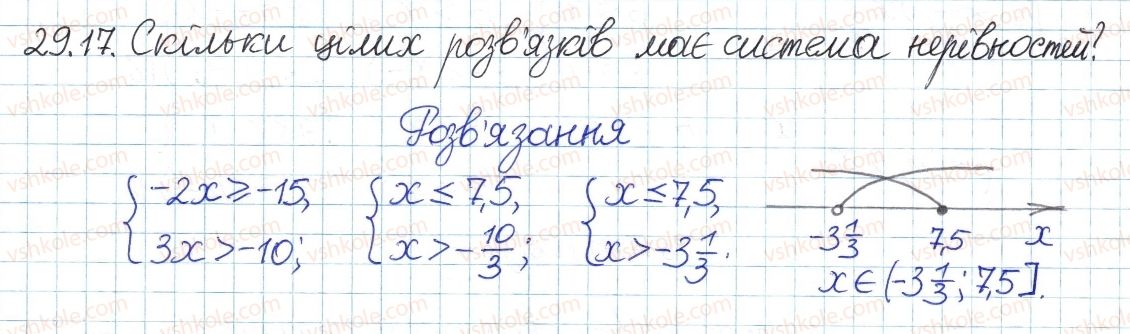 29.17. Скільки цілих розв'язків має система нерівностей?
Розв'язання
{ -2x ≥ -15, { x ≤ 7,5, { x ≤ 7,5,
3x > -10; x > -10/3; x > -3 1/3.
-3 1/3 7,5 x
x ∈ (-3 1/3; 7,5].